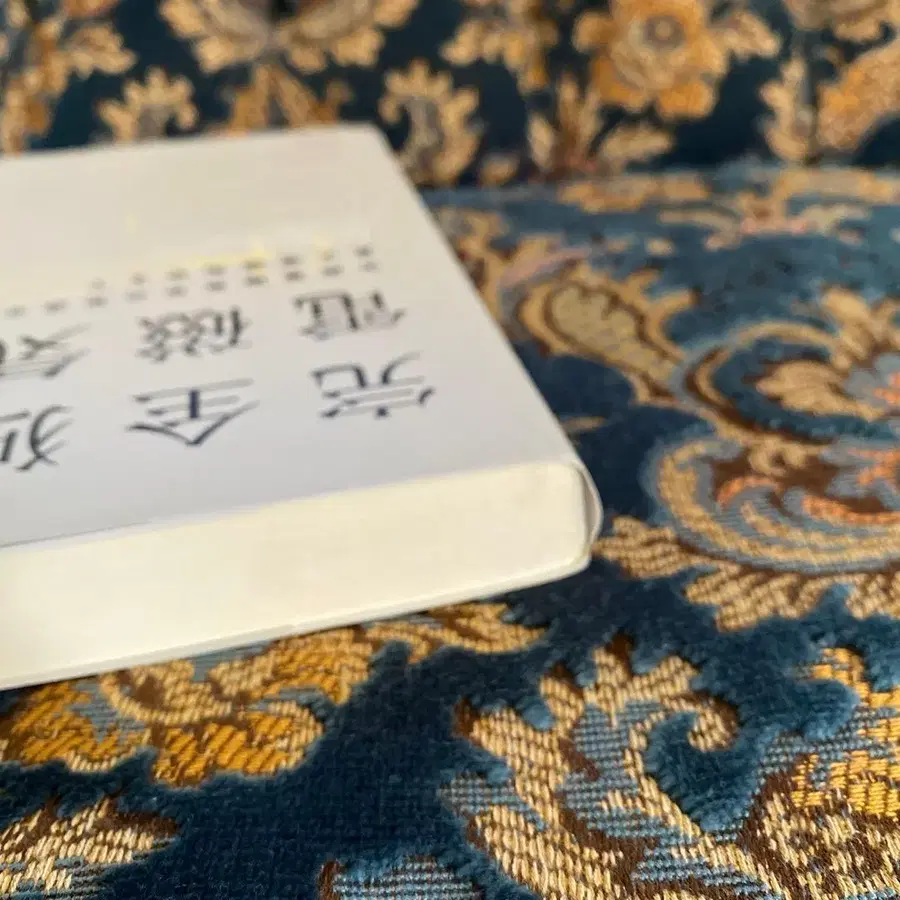 完全独
電磁気